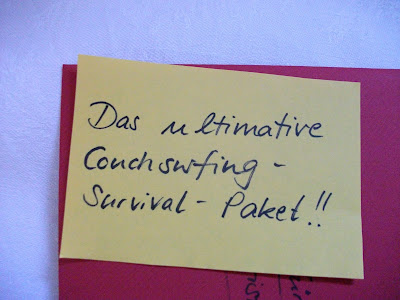 Das ultimative
Couchsurfing -
Survival - Paket!!